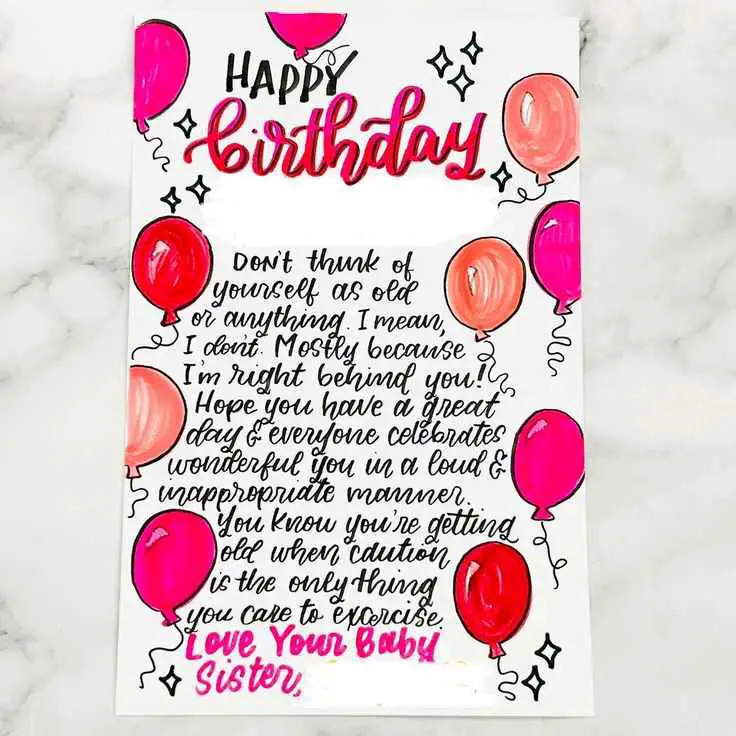 HAPPY
birthday
DON't think of
yourself as old
or anything. I mean,
I don't. Mostly because
I'm right behind you!
Hope you have a great
day & everyone celebrates
wonderful you in a loud &
inappropriate manner.
You know you're getting
old when caution
is the only thing
you care to excercise.
Love Your Baby
Sister,